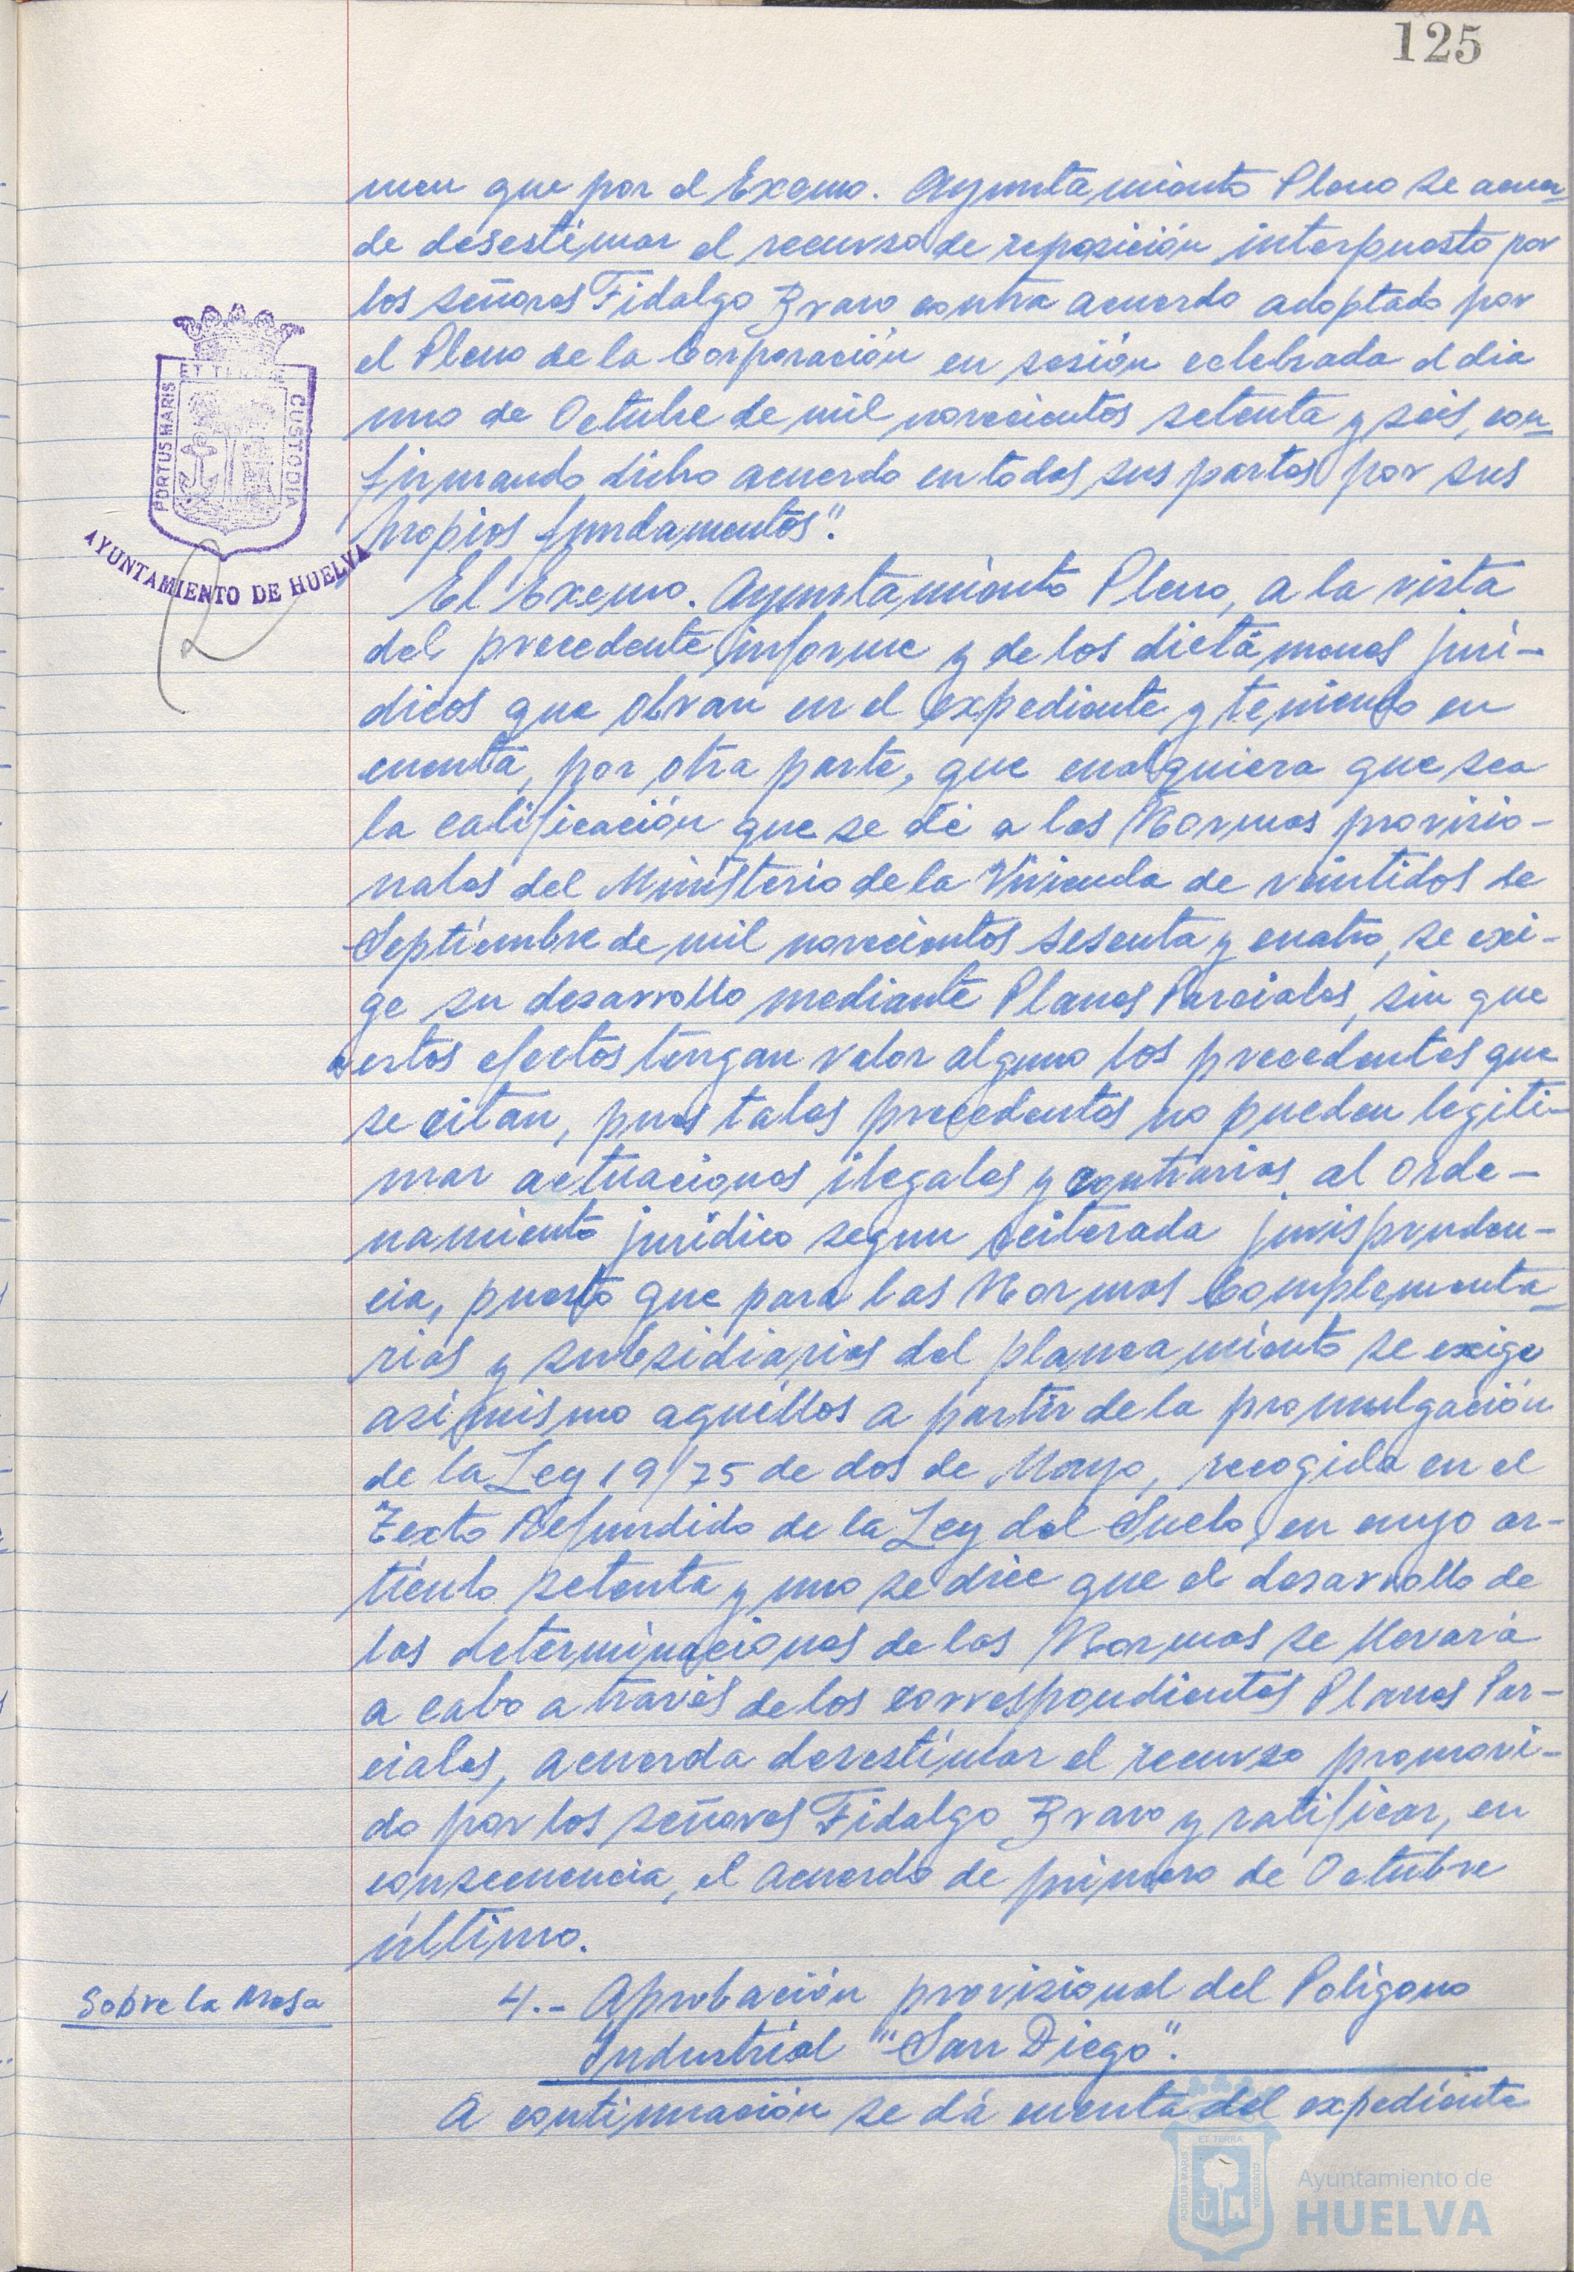 125
men que por el Excmo. Ayuntamiento Pleno se acuer-
de desestimar el recurso de reposición interpuesto por
los señores Fidalgo Bravo contra acuerdo adoptado por
el Pleno de la Corporación en sesión celebrada el dia
uno de Octubre de mil novecientos setenta y seis, con-
firmando dicho acuerdo en todas sus partes por sus
propios fundamentos".
ET TERRAE
PORTUS MARIS
CUSTODIA
AYUNTAMIENTO DE HUELVA
El Excmo. Ayuntamiento Pleno, a la vista
del precedente informe y de los dictámenes jurí-
dicos que obran en el expediente y teniendo en
cuenta, por otra parte, que cualquiera que sea
la calificación que se dé a las Normas provisio-
nales del Ministerio de la Vivienda de veintidos de
Septiembre de mil novecientos sesenta y cuatro, se exi-
ge su desarrollo mediante Planes Parciales, sin que
a estos efectos tengan valor alguno los precedentes que
se citan, pues tales precedentes no pueden legiti-
mar actuaciones ilegales y contrarias al orde-
namiento jurídico segun reiterada jurispruden-
cia, puesto que para las Normas Complementa-
rias y subsidiarias del planeamiento se exige
asímismo aquéllos a partir de la promulgación
de la Ley 19/75 de dos de Mayo, recogida en el
Texto Refundido de la Ley del Suelo, en cuyo ar-
tículo setenta y uno se dice que el desarrollo de
las determinaciones de las Normas se llevará
a cabo a través de los correspondientes Planes Par-
ciales, acuerda desestimar el recurso promovi-
do por los señores Fidalgo Bravo y ratificar, en
consecuencia, el acuerdo de primero de Octubre
último.
Sobre la Mesa
4.- Aprobación provisional del Polígono
Industrial "San Diego".
A continuación se dá cuenta del expediente
ET TERRA
PORTUS MARIS
CUSTODIA
Ayuntamiento de
HUELVA